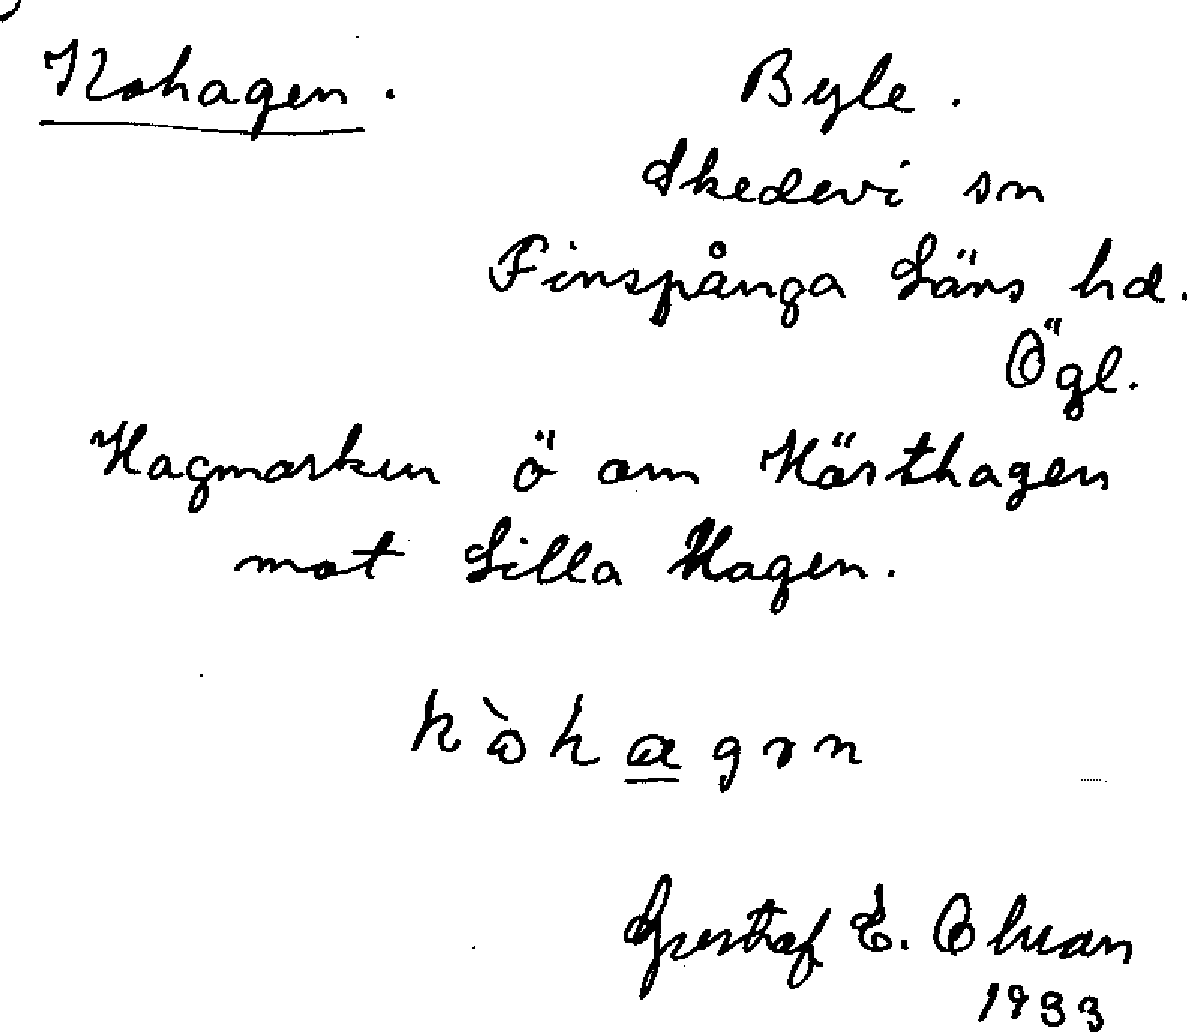 Kohagen. Byle.
Skedevi sn
Finspånga Läns hd.
Ögl.
Hagmarken ö om Hästhagen
mot Lilla Hagen.
kòhagɤn
Gustaf E.
1933